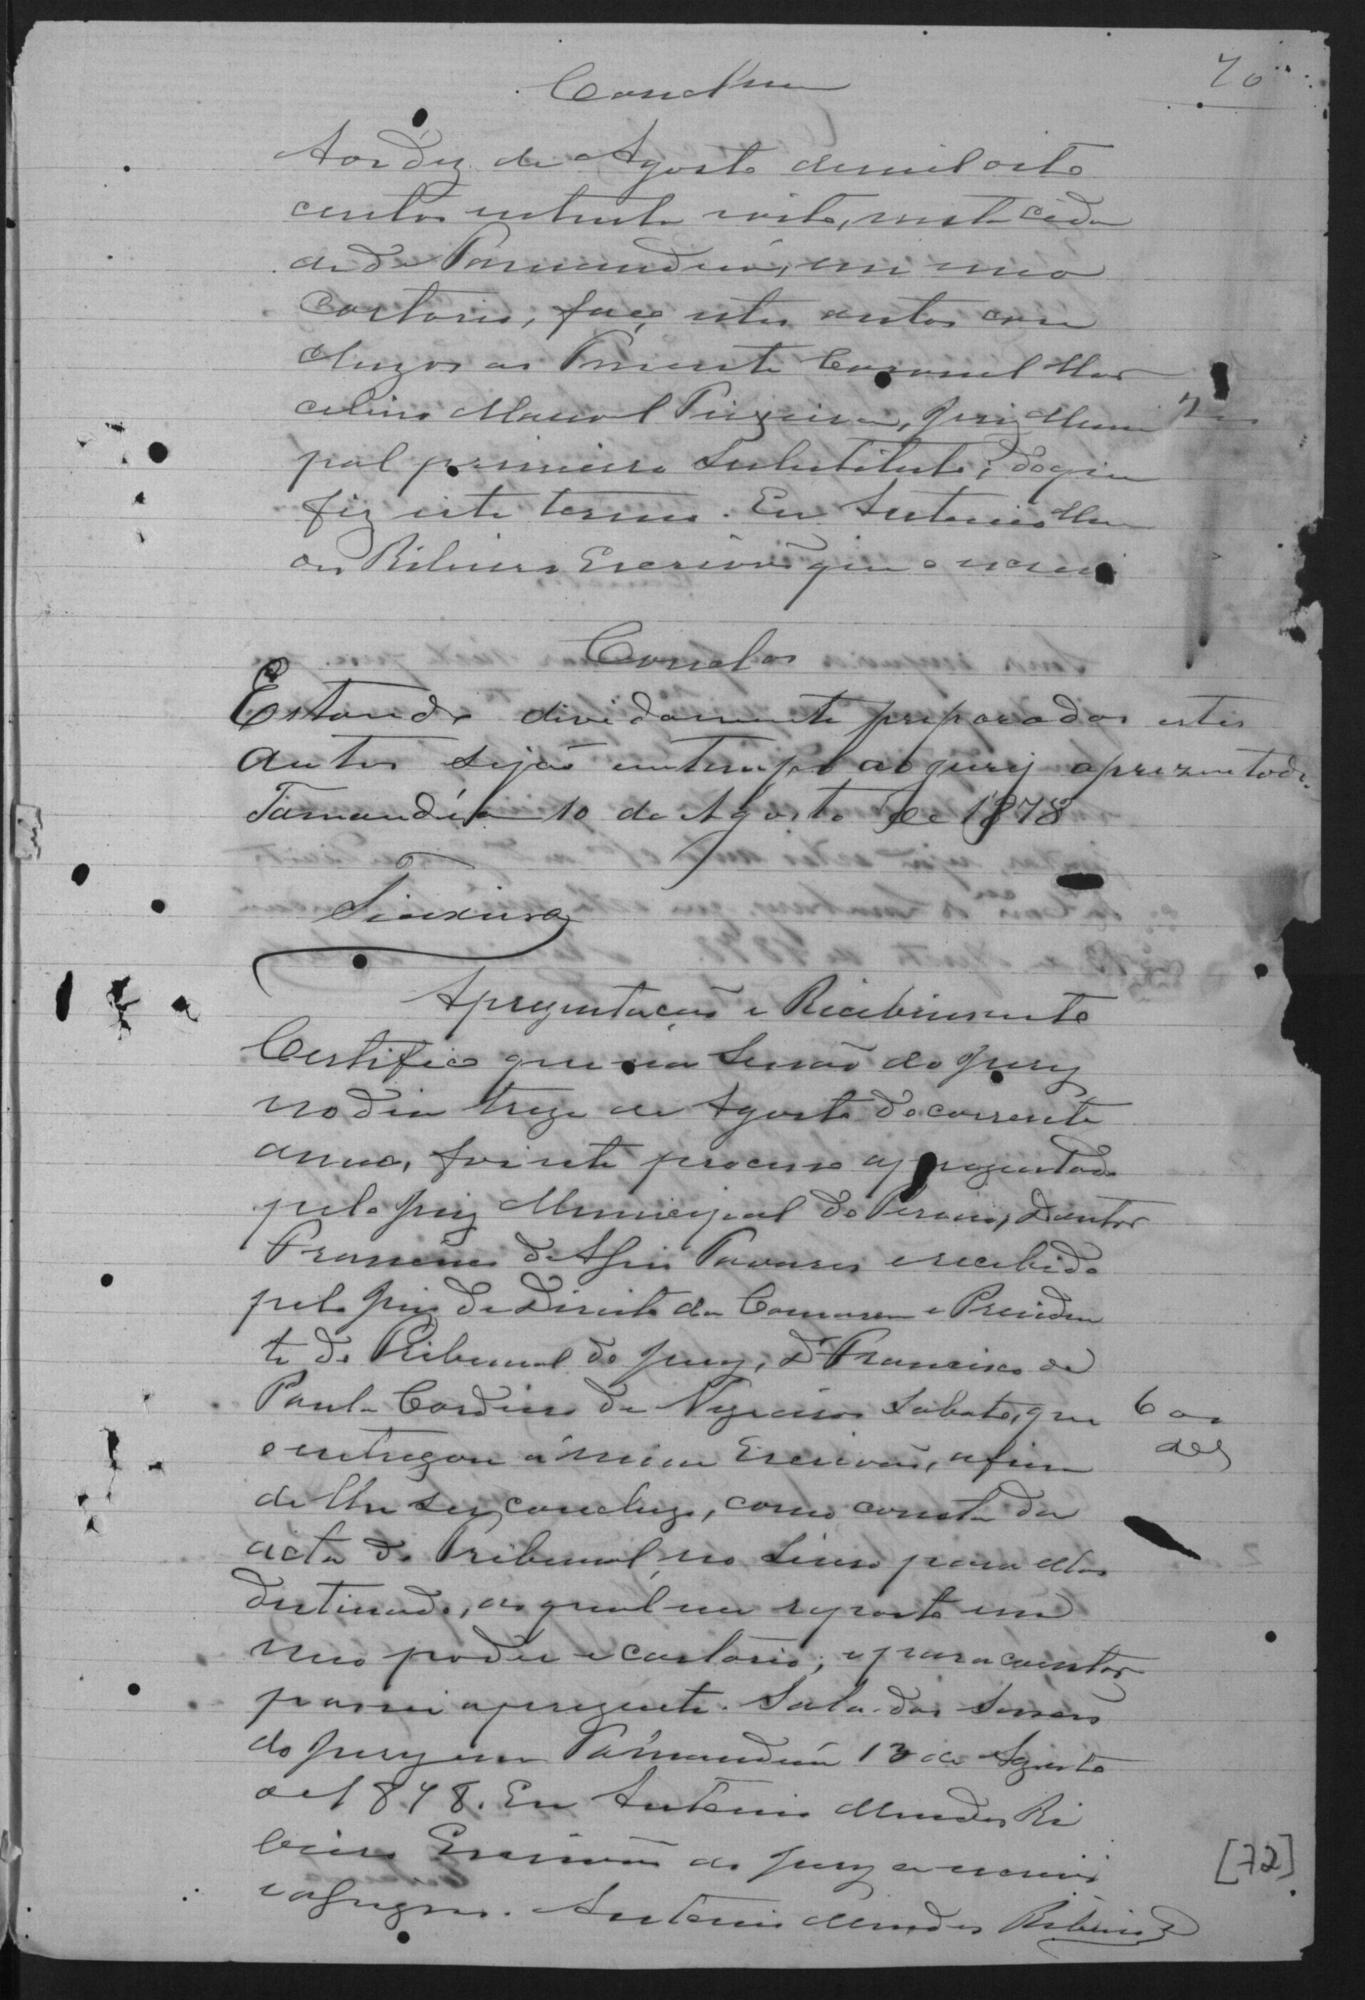 70
Conclusam
Aos dez de Agosto de mil oito
centos e setenta e oito, nesta cida
de de Tamandua, em meu
Cartorio, faço estes autos con
cluzos ao Tenente Coronel Mar
celino Manoel Teixeira, Juiz Munici
pal primeiro Substituto; do que
fiz este termo. Eu Antonio Men
des Ribeiro Escrivão que o escrevi
Conclos
Estando dividamente preparados estes
autos sejão em tempo ao jury aprezentados.
Tamanduá 10 de Agosto de 1878
Teixeira
Aprezentação e Recibimento
Certifico que na Sessão do Jury
no dia treze de Agosto do corrente
anno, foi este processo aprezentado
pelo Juiz Municipal do Termo, Doutor
Francisco de Assis Tavares e recebido
pelo Juiz de Direito da Comarca e Presiden
te do Tribunal do Jury, Dr Francisco de
Paula Cordeiro de Negreiros Lobato, que
o entregou a mim Escrivão, afim
de lhe ser concluzo, como consta da
acta do Tribunal, no Livro para ellas
destinado, ao qual me reporto em
meu poder e cartorio; e para constar
passei a prezente. Sala das Sessões
do Jury em Tamanduá 13 de Agosto
de 1878. Eu Antonio Mendes Ri
beiro Escrivão do Jury o escrevi
e assigno. Antonio Mendes Ribeiro
[72]